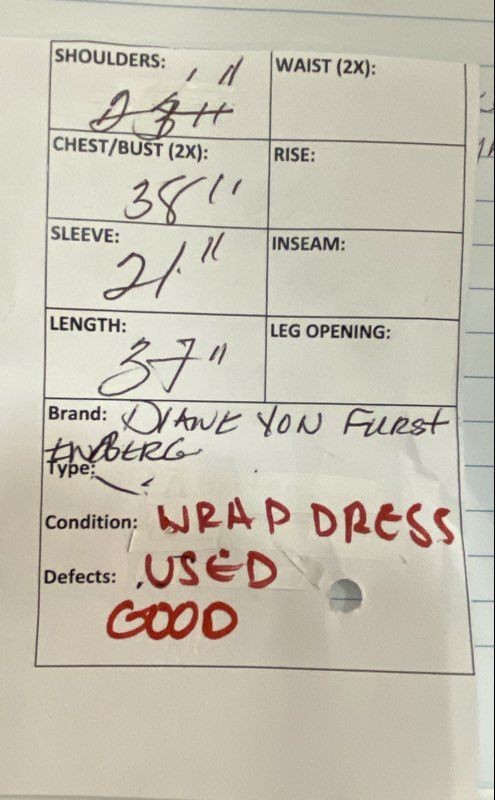 SHOULDERS: WAIST (2X):
CHEST/BUST (2X): RISE:
38"
SLEEVE: INSEAM:
21"
LENGTH: LEG OPENING:
37"
Brand: DIANE VON FURST
ENBERG
Type:
Condition: WRAP DRESS
Defects: USED
GOOD